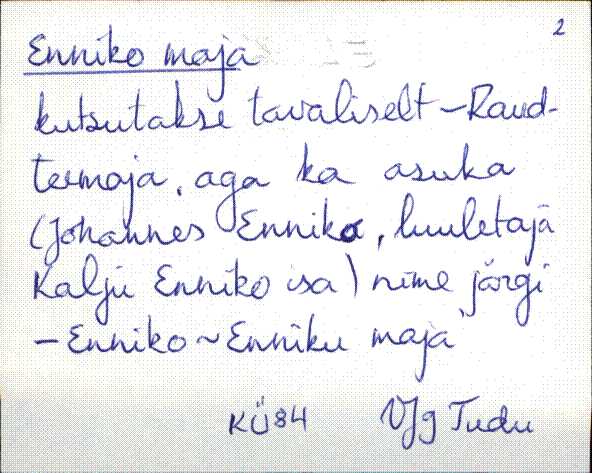 2
Enniko maja
kutsutakse tavaliselt – Raud-
teemaja, aga ka asuka
(Johannes Enniko, luuletaja
Kalju Enniko isa) nime järgi
– Enniko ~ Enniku maja
KÜ84 VJg Tudu